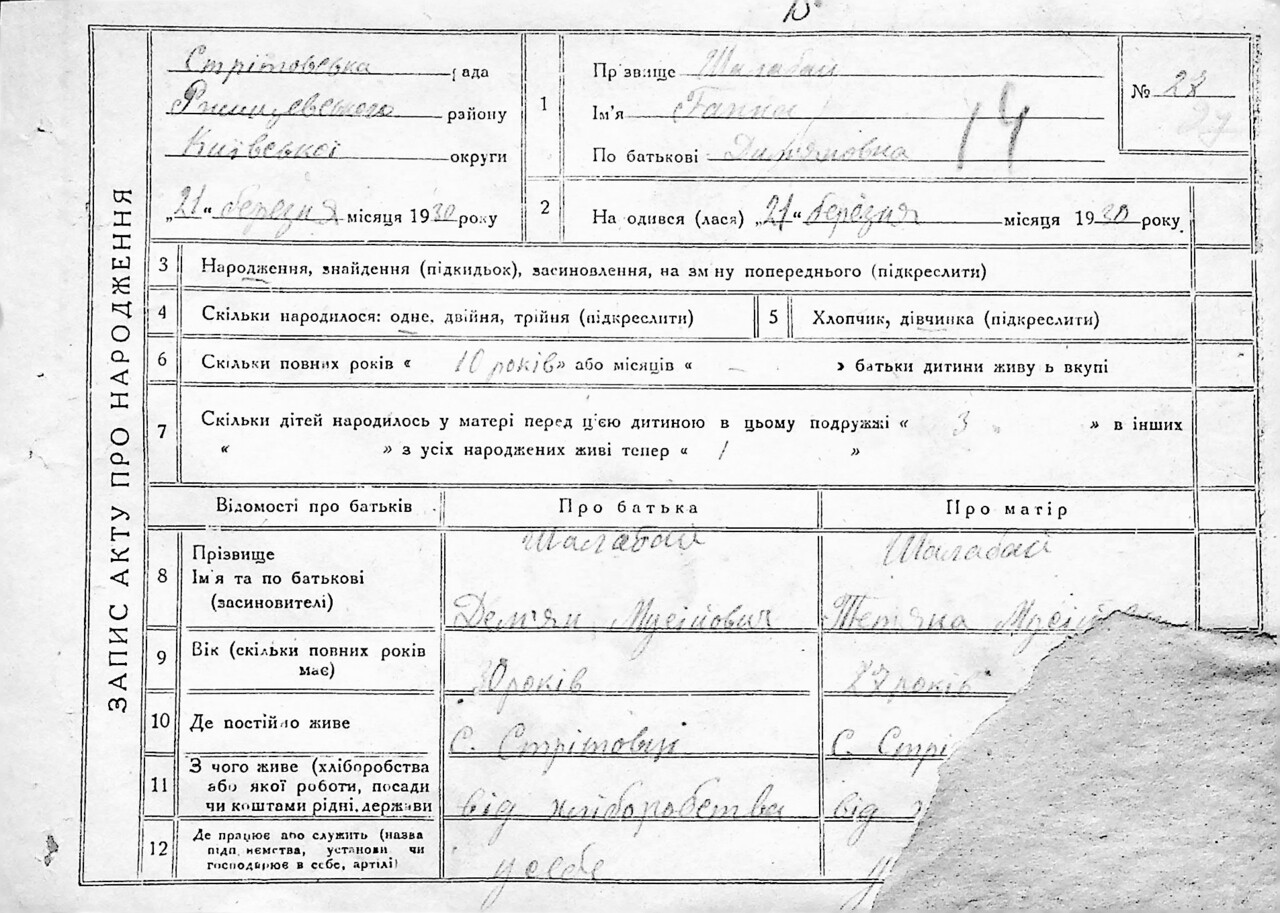 ЗАПИС АКТУ ПРО НАРОДЖЕННЯ
Стрітовська рада
Ржищевського району
Київської округи
„21“ березня місяця 1930 року
1 Прізвище Шалабай
Ім'я Ганна
По батькові Дем'янівна
14
№ 27
27
2 Народився (лася) „21“ березня місяця 1930 року
3 Народження, знайдення (підкидьок), засиновлення, на зміну попереднього (підкреслити)
4 Скільки народилося: одне, двійня, трійня (підкреслити)
5 Хлопчик, дівчинка (підкреслити)
6 Скільки повних років « 10 років» або місяців « – » батьки дитини живуть вкупі
7 Скільки дітей народилось у матері перед ц'єю дитиною в цьому подружжі « 3 » в інших
« » з усіх народжених живі тепер « 1 »
Відомості про батьків Про батька Про матір
8 Прізвище Шалабай Шалабай
Ім'я та по батькові
(засиновителі) Дем'ян Мусійович Тетяна
9 Вік (скільки повних років має) 30 років 27 років
10 Де постійно живе С. Стрітовці С.
11 З чого живе (хліборобства
або якої роботи, посади
чи коштами рідні, держави від хліборобства від
12 Де працює або служить (назва
підприємства, установи чи
господарює в себе, артілі) у себе